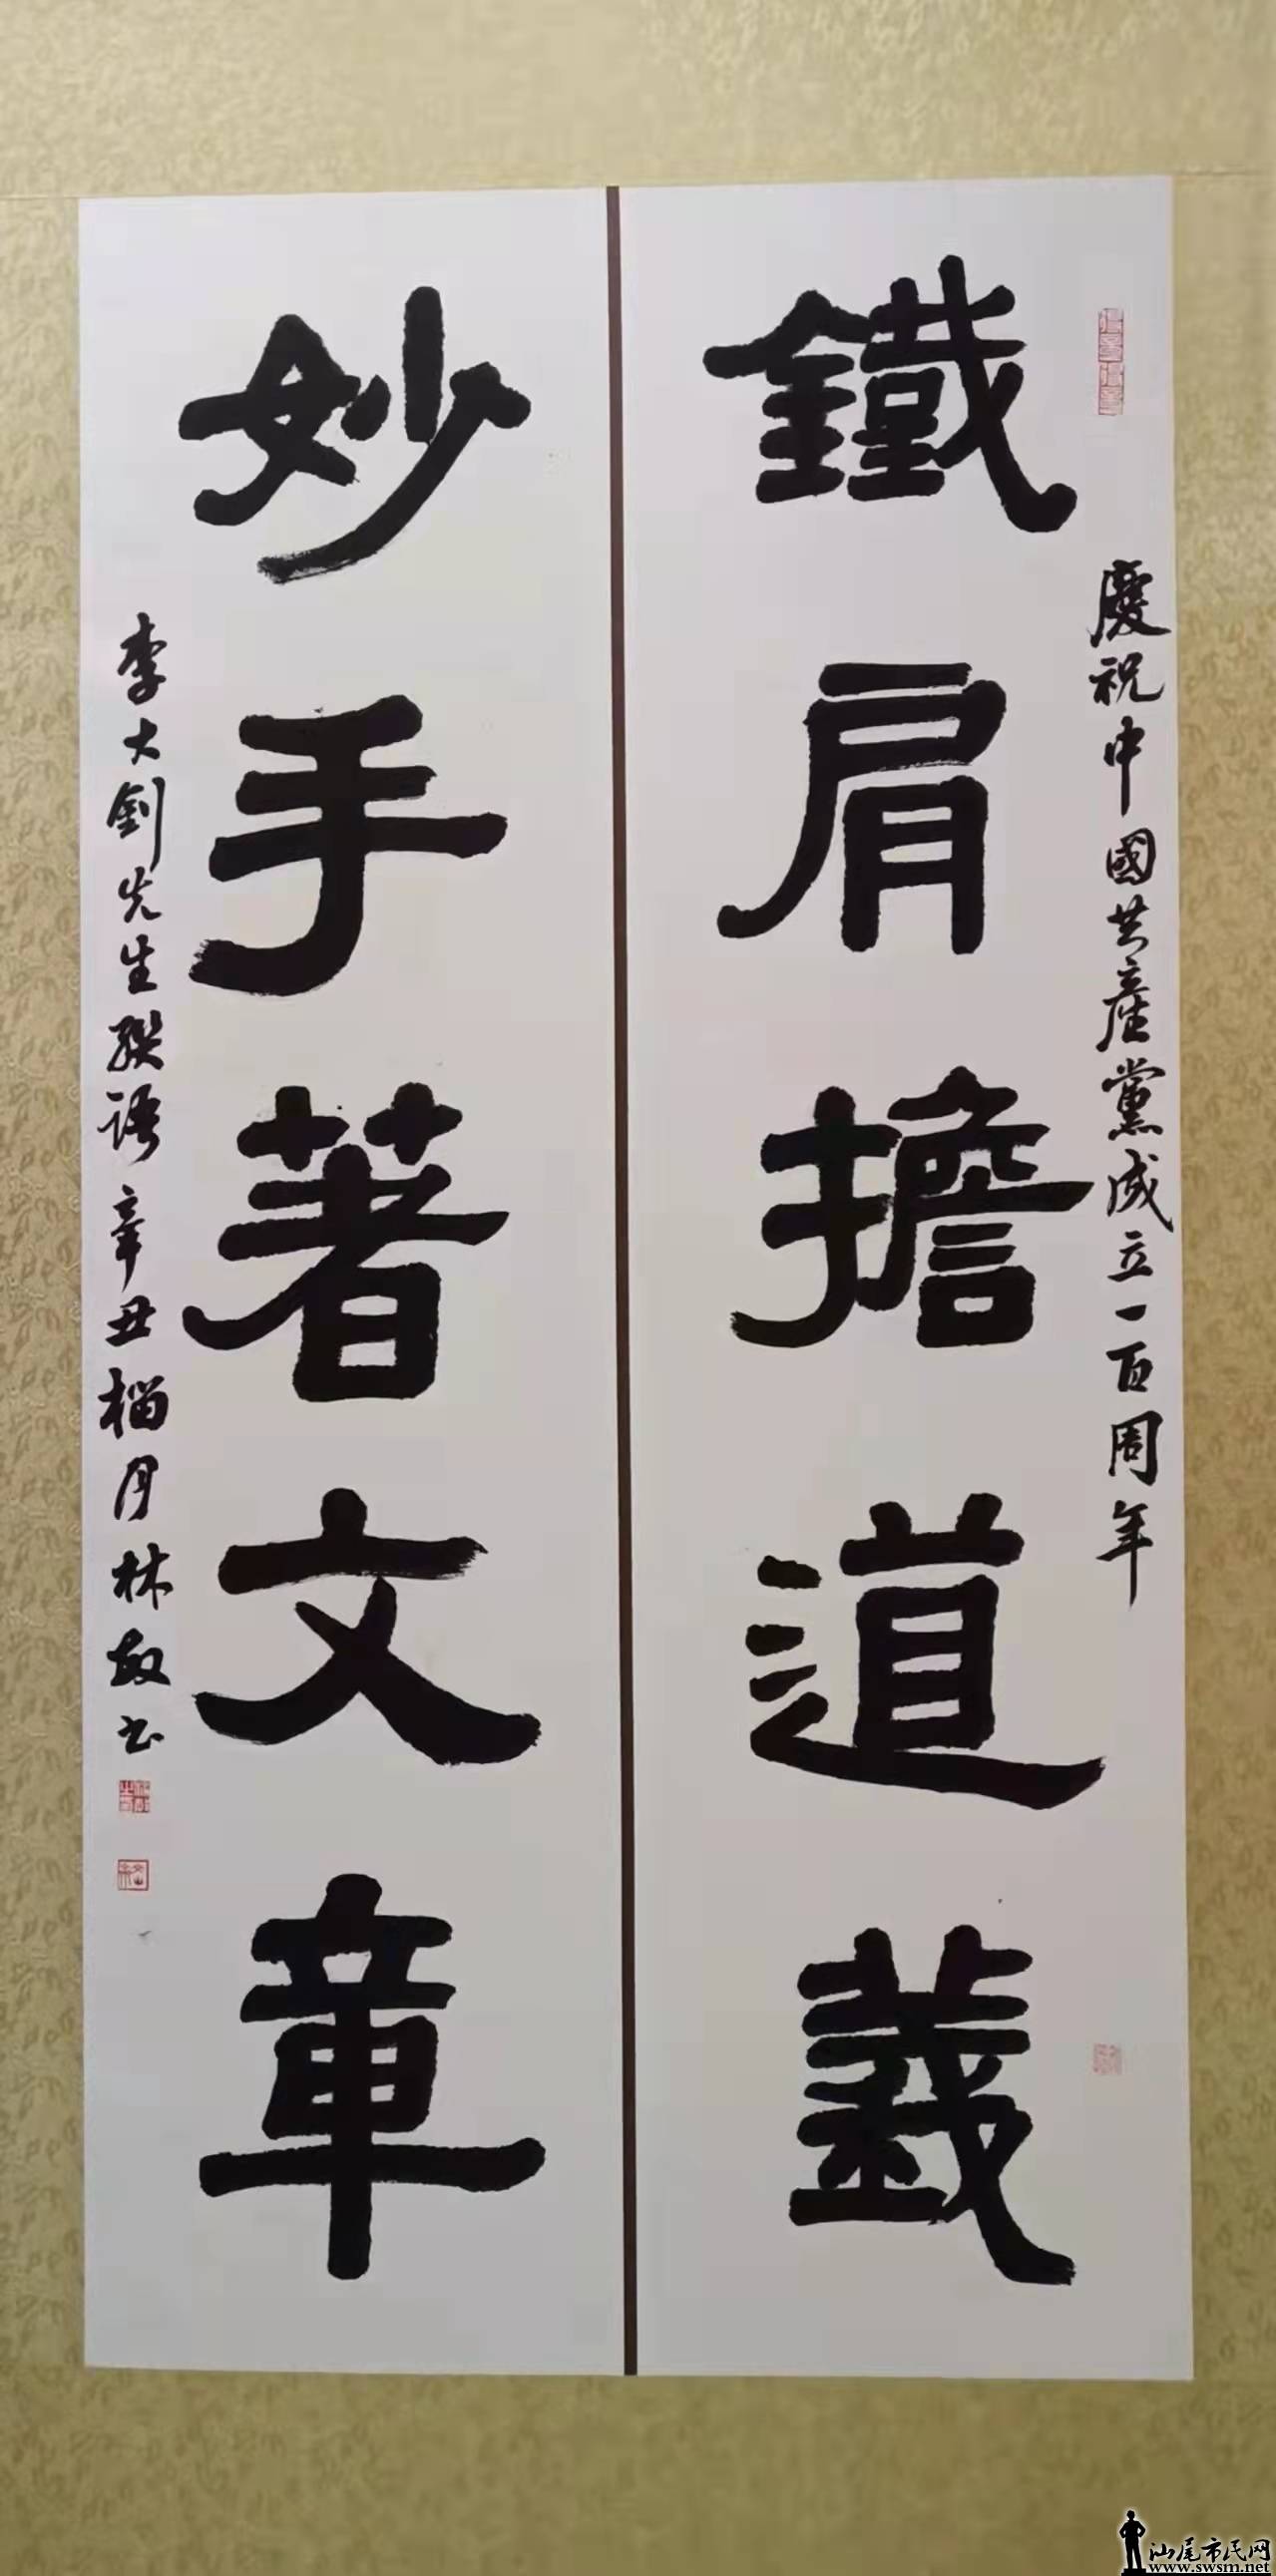 慶祝中國共產黨成立一百周年
鐵肩擔道義
妙手著文章
李大釗先生聯語 辛丑榴月林敏书
汕尾市民网
www.swsm.net